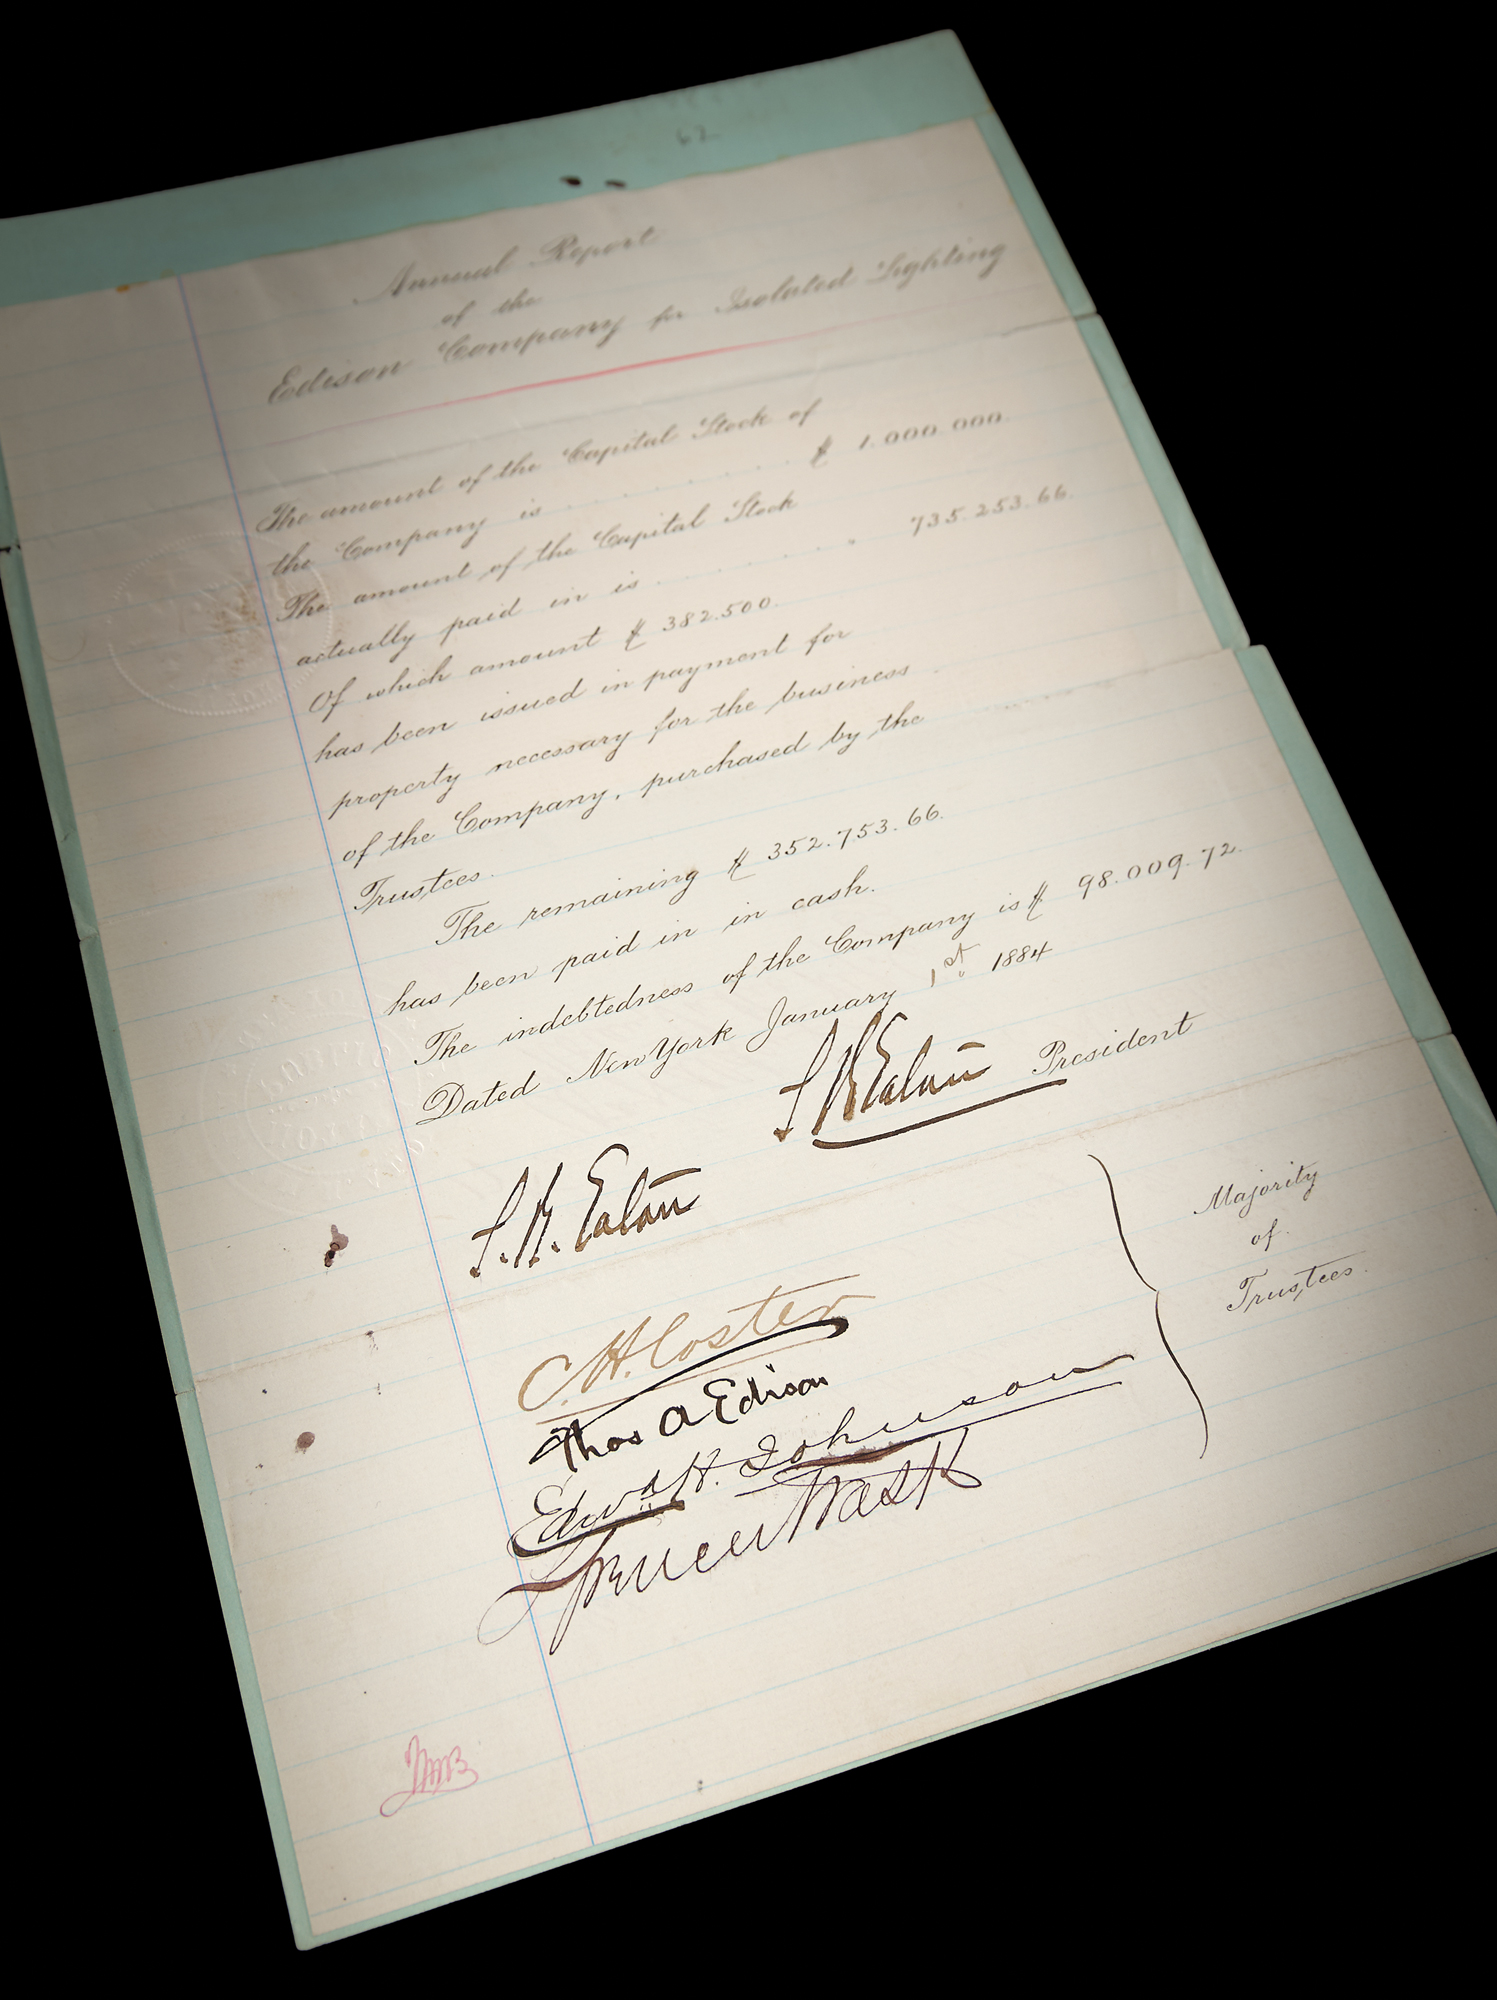 62
Annual Report
of the
Edison Company for Isolated Lighting
The amount of the Capital Stock of
the Company is . . . . . . . . $ 1.000.000.
The amount of the Capital Stock
actually paid in is . . . . . . . . 735.253.66.
Of which amount $ 382.500.
has been issued in payment for
property necessary for the business
of the Company, purchased by the
Trustees.
The remaining $ 352.753.66.
has been paid in in cash.
The indebtedness of the Company is $ 98.009.72.
Dated New York January 1st 1884
S. B. Eaton President
S. B. Eaton
C. H. Coster
Thos A Edison
Edwd H. Johnson
Spencer Trask
Majority
of
Trustees.